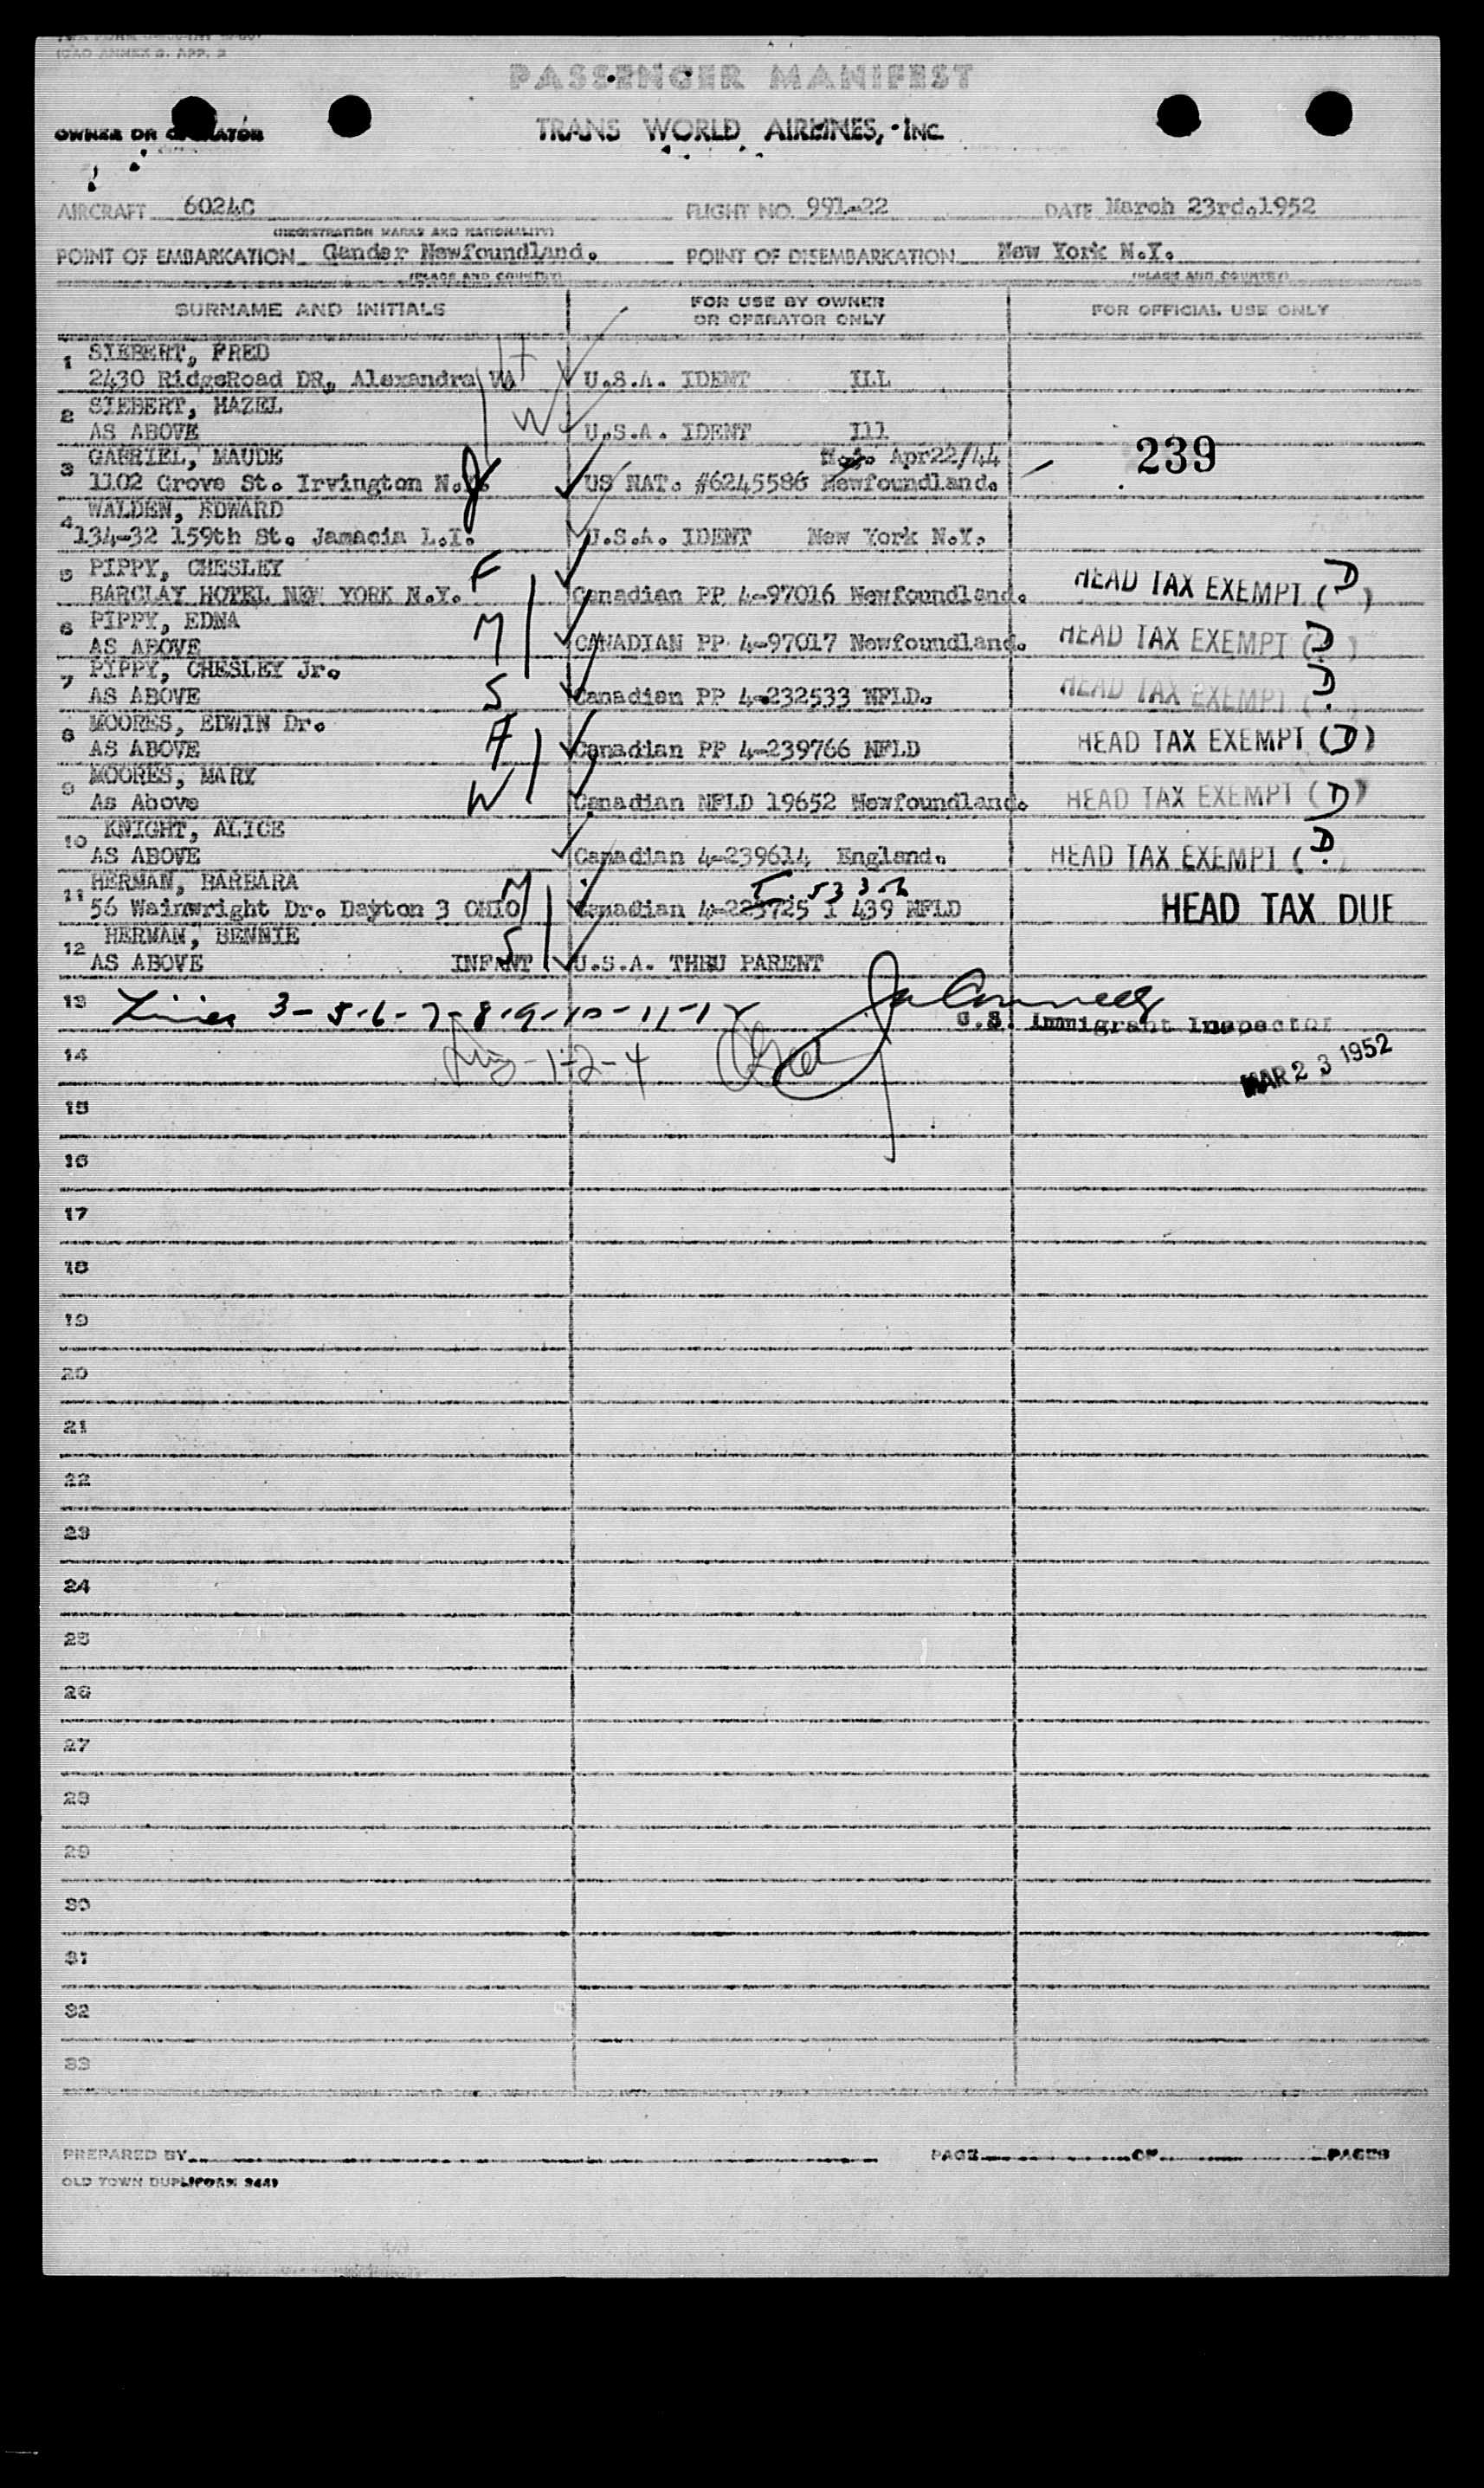 ICAO ANNEX 9, APP. 2
PASSENGER MANIFEST
OWNER OR OPERATOR TRANS WORLD AIRLINES, INC.
AIRCRAFT 6024C FLIGHT NO. 991-22 DATE March 23rd,1952
(REGISTRATION MARKS AND NATIONALITY)
POINT OF EMBARKATION Gander Newfoundland. POINT OF DISEMBARKATION New York N.Y.
(PLACE AND COUNTRY) (PLACE AND COUNTRY)
SURNAME AND INITIALS FOR USE BY OWNER OR OPERATOR ONLY FOR OFFICIAL USE ONLY
1 SIEBERT, FRED H
2430 RidgeRoad DR, Alexandra VA U.S.A. IDENT ILL
2 SIEBERT, HAZEL W
AS ABOVE U.S.A. IDENT Ill
239
3 GABRIEL, MAUDE Apr22/44
1102 Grove St. Irvington N.J. US NAT. #6245586 Newfoundland.
4 WALDEN, EDWARD
134-32 159th St. Jamacia L.I. U.S.A. IDENT New York N.Y.
5 PIPPY, CHESLEY F
BARCLAY HOTEL NEW YORK N.Y. Canadian PP 4-97016 Newfoundland. HEAD TAX EXEMPT (D)
6 PIPPY, EDNA M
AS ABOVE CANADIAN PP 4-97017 Newfoundland. HEAD TAX EXEMPT (D)
7 PIPPY, CHESLEY Jr.
AS ABOVE S Canadian PP 4-232533 NFLD. HEAD TAX EXEMPT (D)
8 MOORES, EDWIN Dr. H
AS ABOVE Canadian PP 4-239766 NFLD HEAD TAX EXEMPT (D)
9 MOORES, MARY W
As Above Canadian NFLD 19652 Newfoundland. HEAD TAX EXEMPT (D)
10 KNIGHT, ALICE
AS ABOVE Canadian 4-239614 England. HEAD TAX EXEMPT (D)
11 HERMAN, BARBARA M
56 Wainwright Dr. Dayton 3 OHIO Canadian 4-223725 I 439 NFLD HEAD TAX DUE
12 HERMAN, BENNIE S
AS ABOVE INFANT U.S.A. THRU PARENT
13 Lines 3-5-6-7-8-9-10-11-12
U.S. Immigrant Inspector
14 1-2-4
MAR 23 1952
15
16
17
18
19
20
21
22
23
24
25
26
27
28
29
30
31
32
33
PREPARED BY PAGE OF PAGES
OLD TOWN DUPLIFORM 9449